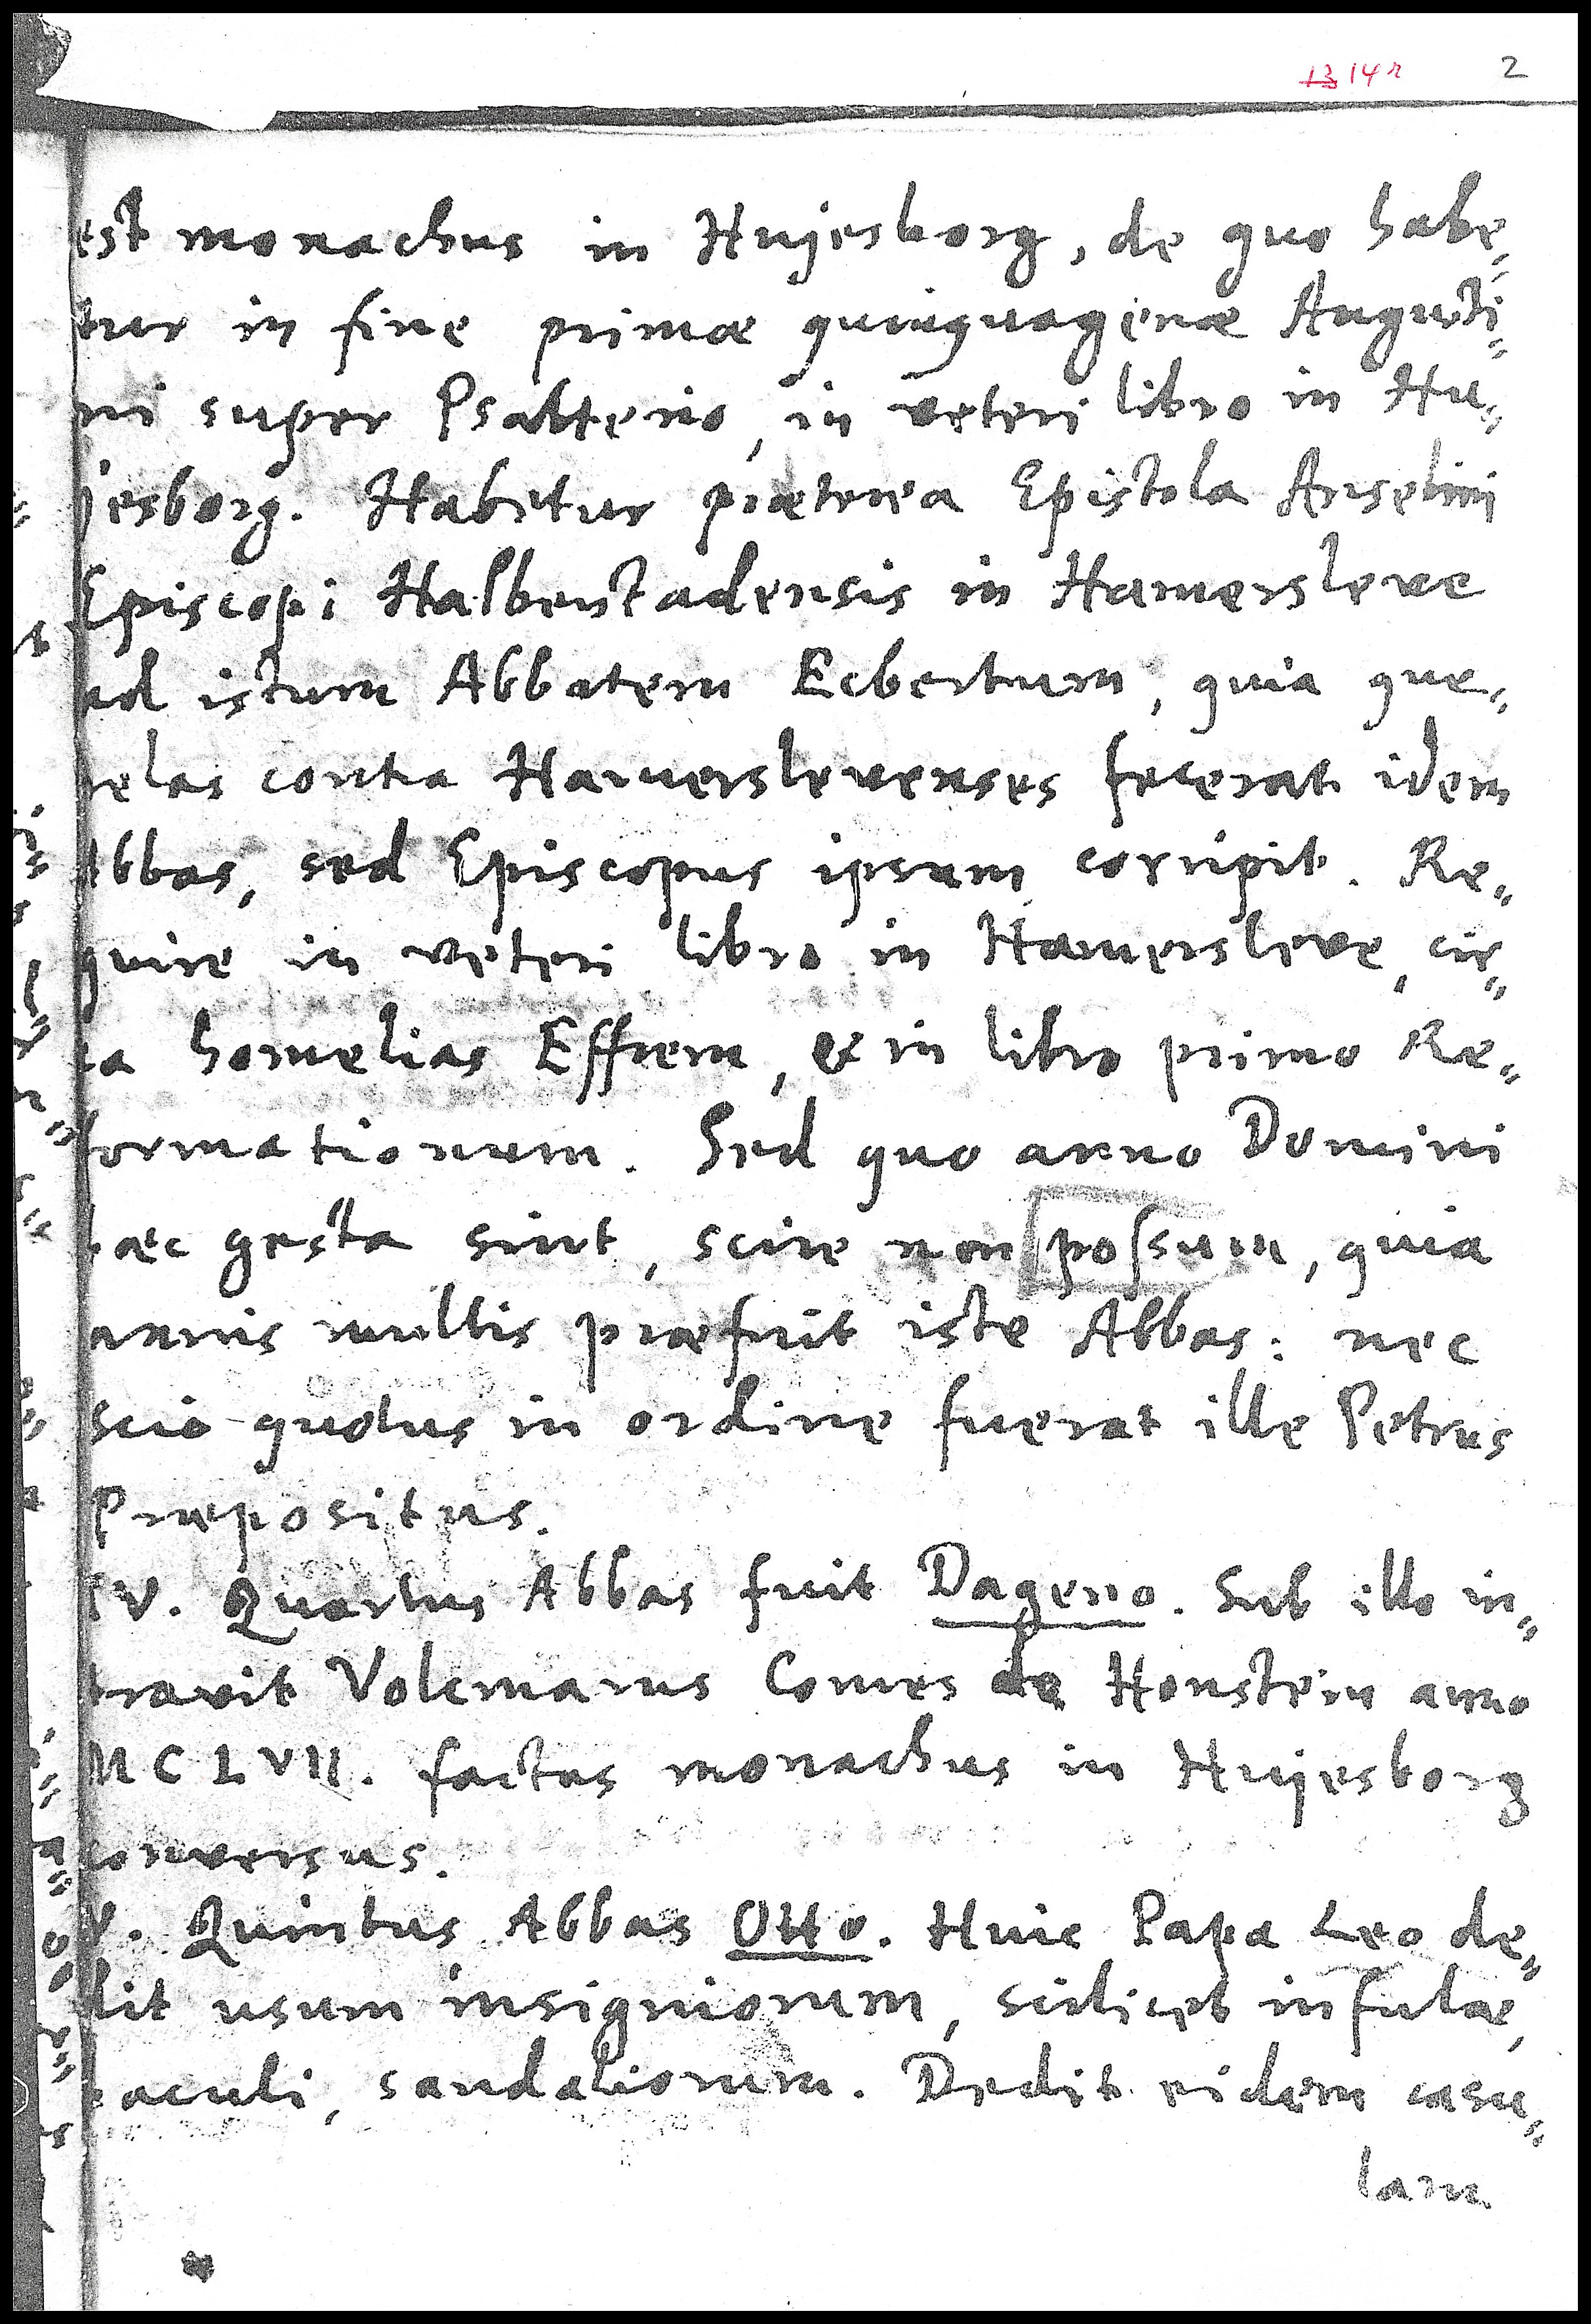 13 14r 2
est monachus in Hujesborg, de quo habe„
tur in fine primæ quinquagenæ Augusti„
ni super Psalterio, in veteri libro in Hu„
jesborg. Habetur præterea Epistola Anselmi
Episcopi Halbenstadensis in Hamersleve
ad istum Abbatem Ecbertum, quia que„
relas contra Hamerslevenses fecerat idem
Abbas, sed Episcopus ipsum corripit. Re„
quire in veteri libro in Hamersleve, cir„
ca homelias Effrem, & in libro primo Re„
formationum. Sed quo anno Domini
hæc gesta sint, scire non possum, quia
annis multis præfuit iste Abbas: nec
scio quotus in ordine fuerat ille Petrus
Præpositus.
IV. Quartus Abbas fuit Dageno. Sub illo in„
travit Volcmarus Comes de Honstein anno
MCLVII. factus monachus in Hujesborg
conversus.
V. Quintus Abbas Otto. Huic Papa Leo de„
dit usum insigniorum, scilicet infulæ,
baculi, sandaliorum. Dedit eidem casu„
lam